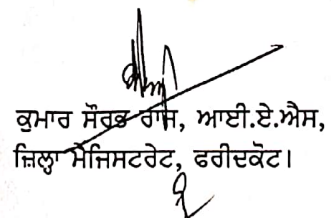 ਕੁਮਾਰ ਸੌਰਭ ਰਾਜ, ਆਈ.ਏ.ਐਸ,
ਜ਼ਿਲ੍ਹਾ ਮੈਜਿਸਟਰੇਟ, ਫਰੀਦਕੋਟ।